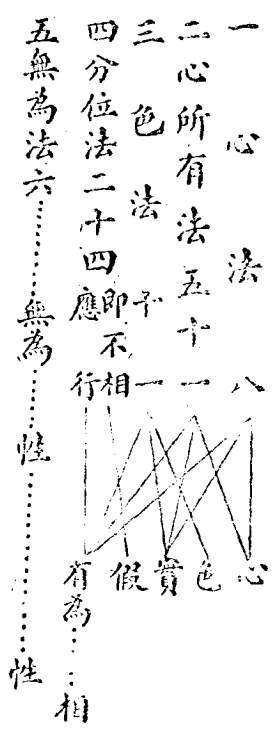 一心法八
二心所有法五十一
三色法十一
四分位法二十四即不相應行
五無為法六……無為……性……性
心
色
實
假
有為……相